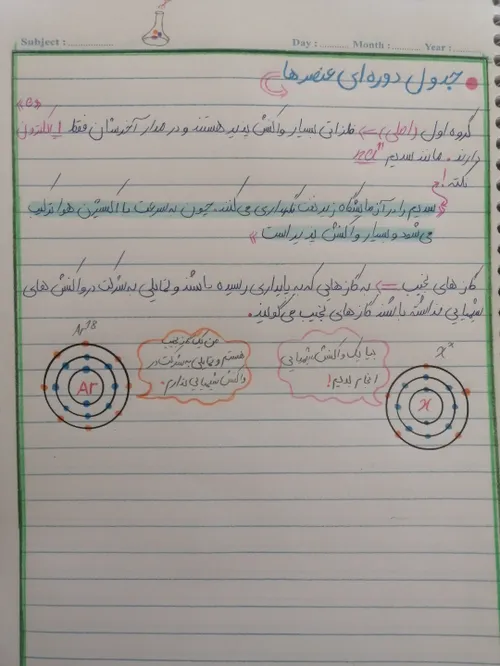 Subject : Day : Month : Year :
جدول دوره ای عنصرها
«e»
گروه اول (اصلی) => فلزاتی بسیار واکنش پذیر هستند و در مدار آخرشان فقط 1 الکترون
دارند. مانند سدیم na¹¹
نکته!
سدیم را در آزمایشگاه زیر نفت نگهداری می کنند. چون به سرعت با اکسیژن هوا ترکیب
می شود و بسیار واکنش پذیر است
گاز های نجیب => به گازهایی که به پایداری رسیده باشند و تمایلی به شرکت در واکنش های
شیمیایی نداشته باشند گازهای نجیب می گویند.
x
بیا یک واکنش شیمیایی
انجام بدیم!
X
Ar¹⁸
من یک گاز نجیب
هستم و تمایلی به شرکت در
واکنش شیمیایی ندارم.
Ar